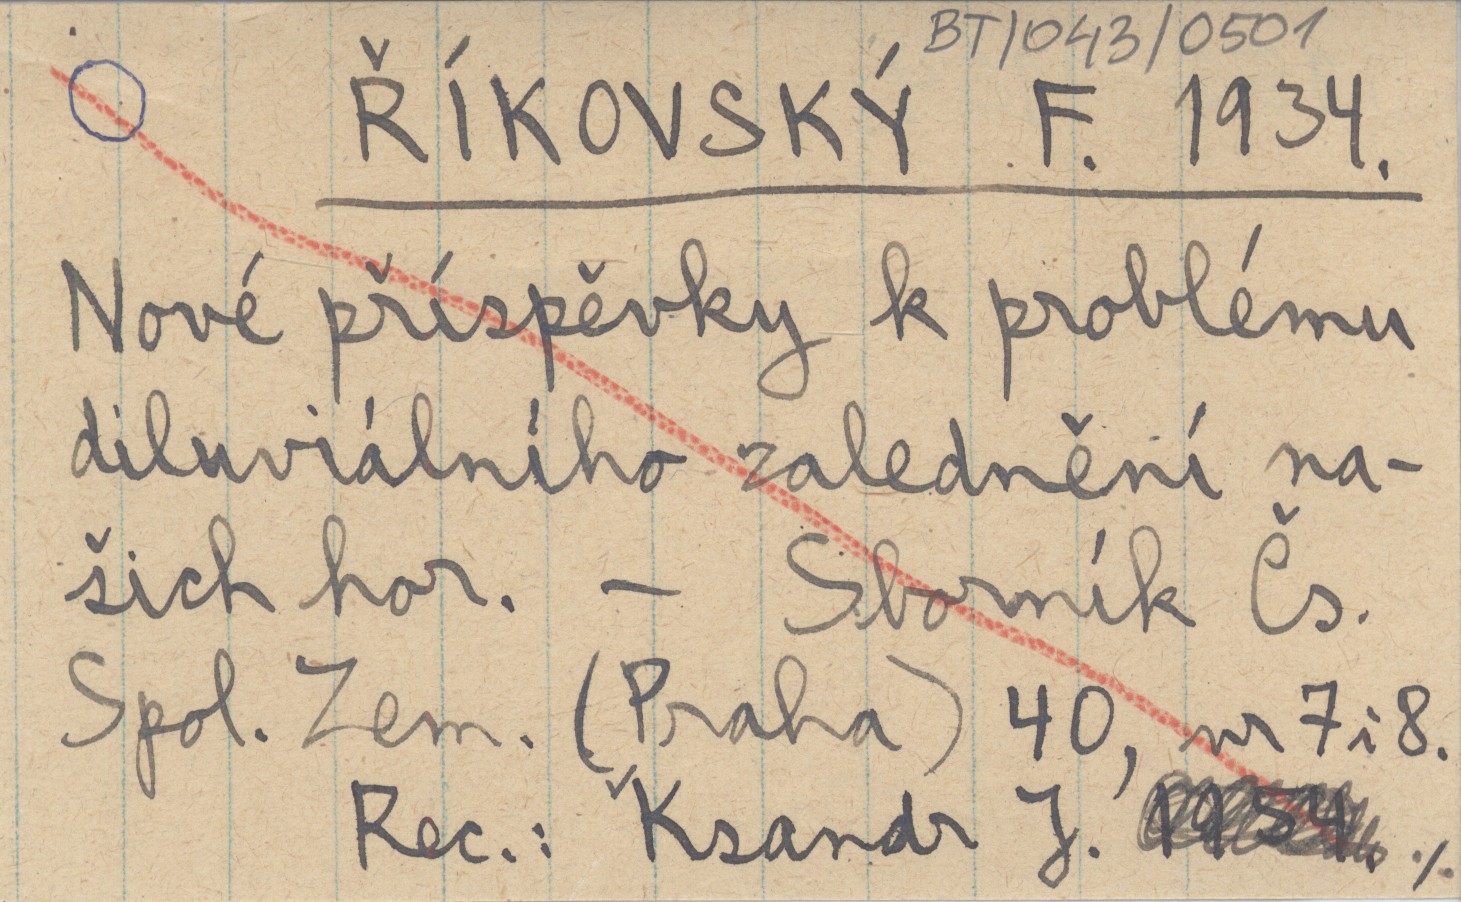 BT/043/0501
ŘÍKOVSKÝ F. 1934.
Nové příspěvky k problému
diluviálního zalednění na-
šich hor. – Sborník Čs.
Spol. Zem. (Praha) 40, nr 7 i 8.
Rec.: Ksandr J. 1954. ./.